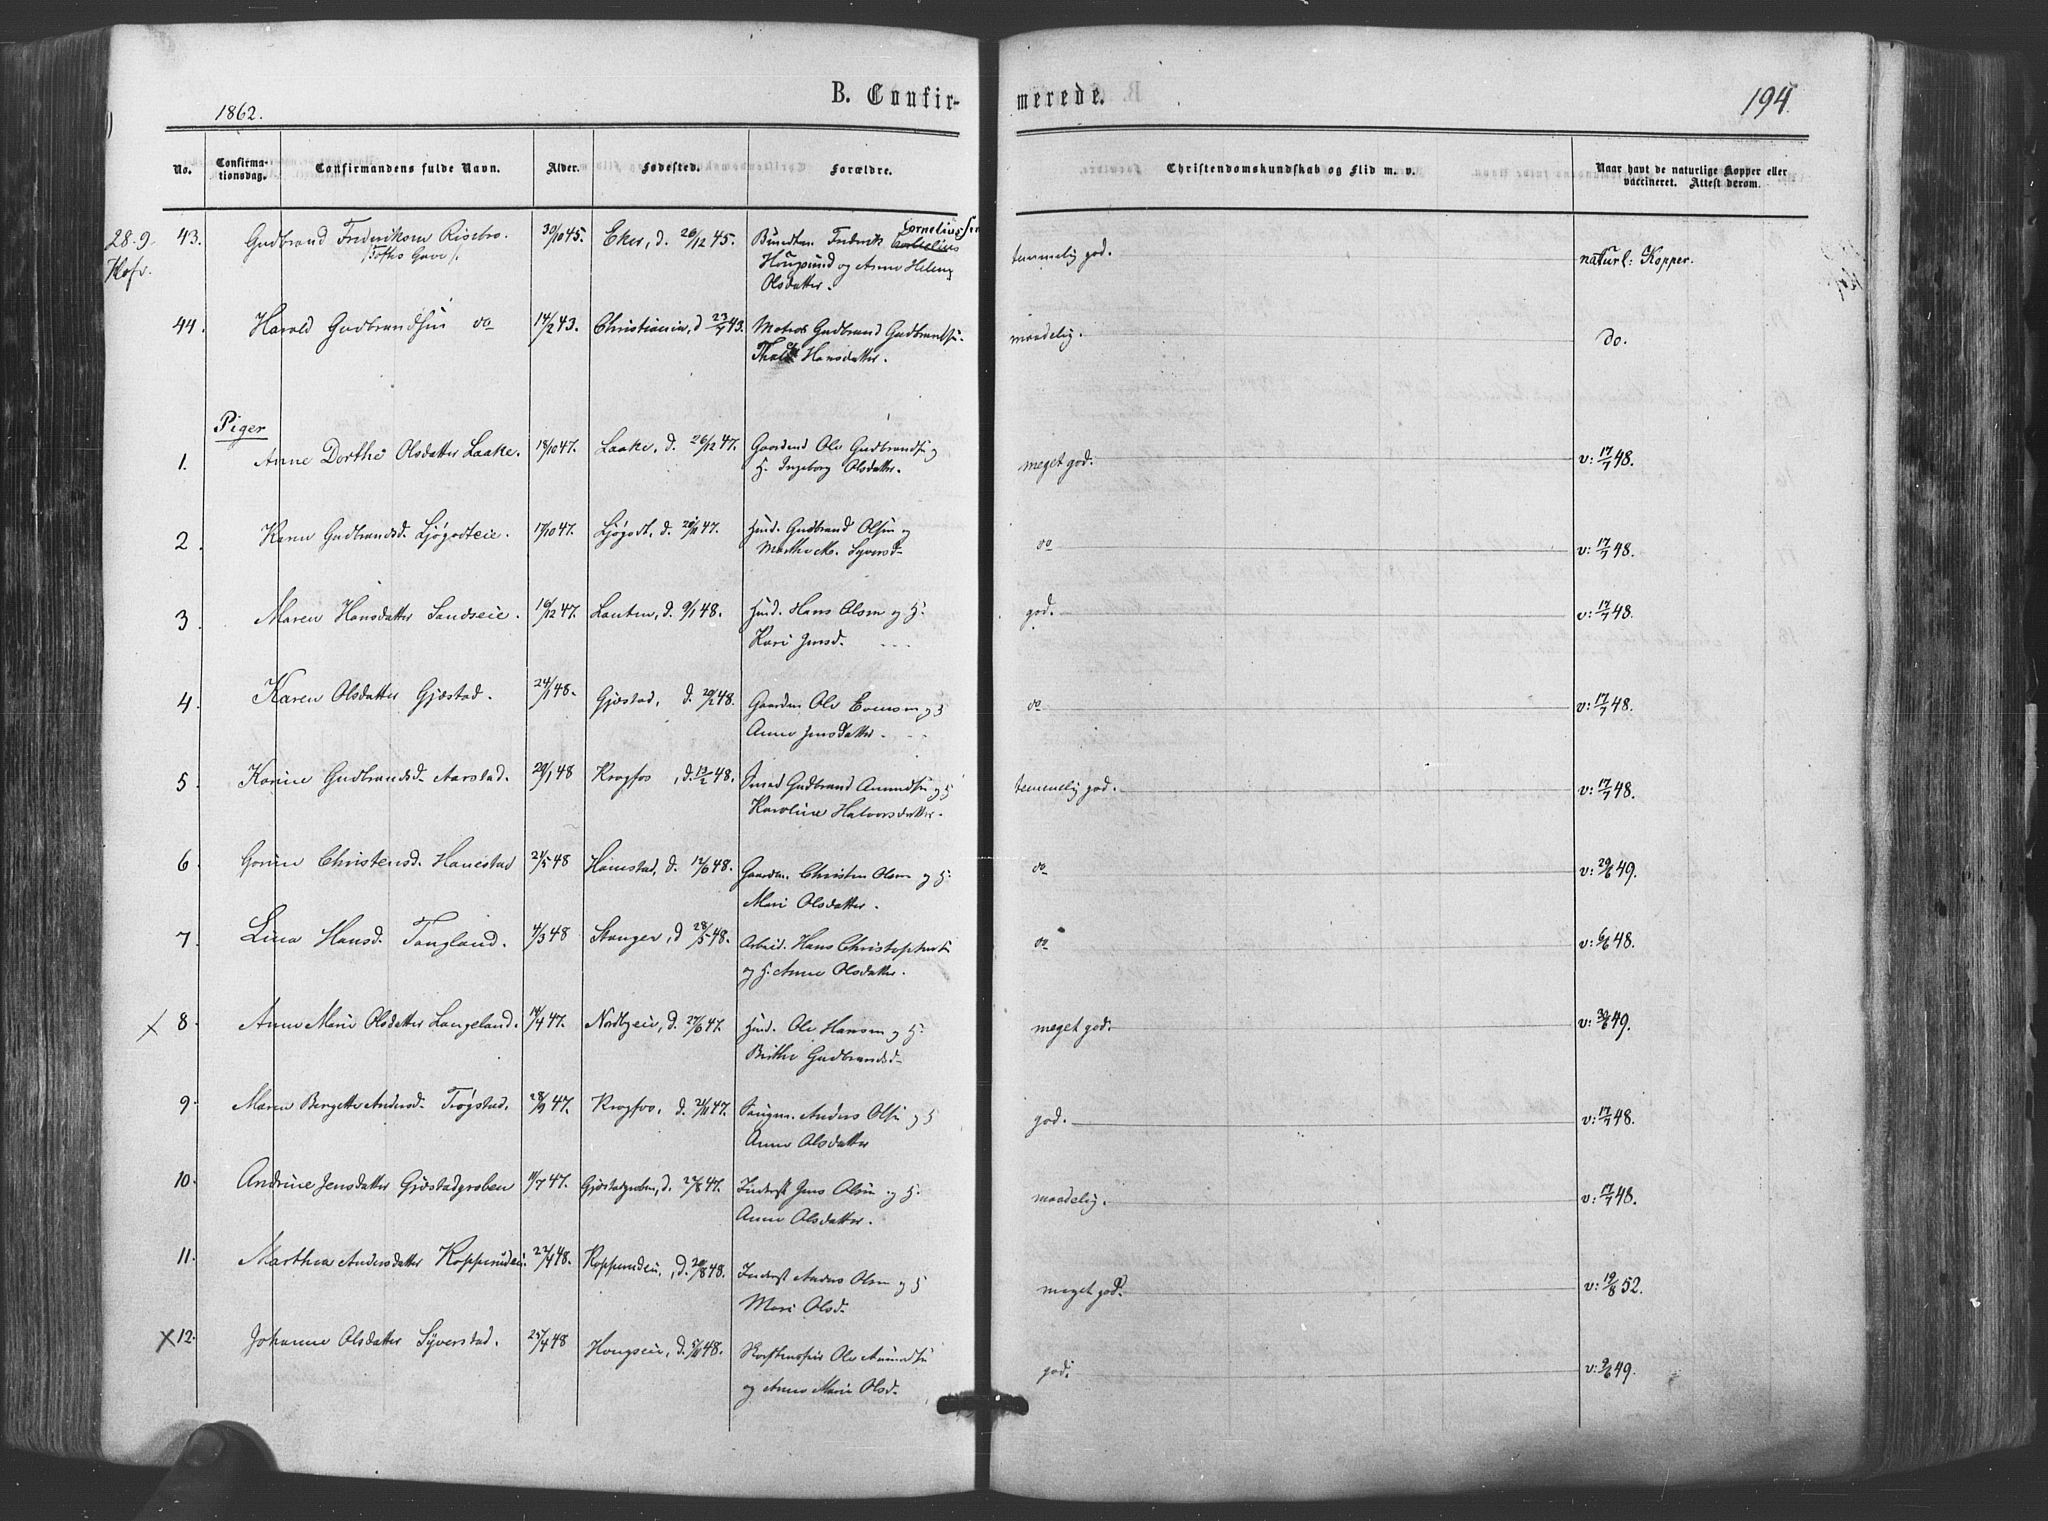 1862.
B. Confir-
merede.
194.
No.
Confirma-
tionsdag.
Confirmandens fulde Navn.
Alder.
Fødested.
Forældre.
Christendomskundskab og Flid m. v.
Naar havt de naturlige Kopper eller
vaccineret. Attest derom.
28-9.
43. Gudbrand Frederiksen Risebro. 30/10 45. Eker, d. 26/12 45. Frederik Cornelius Cornelius
Hougsund og Anne Helene
Olsdatter.
temmelig god. naturl: Kopper.
44. Harald Gudbrandsen do 14/2 43. Christiania, d 23/7 43. Matros Gudbrand Gudbrandsen
Hansdatter.
maadelig. do.
Piger
1. Anne Dorthe Olsdatter Laake. 18/10 47. Laake, d. 26/12 47. Gaardmd Ole Gudbrandsen
H. Ingeborg Olsdatter.
meget god. v: 17/7 48.
2. Karen Gudbrandsd. Ljøgodteie. 17/10 47. Ljøgodt, d. 47. Husmd. Gudbrand Olsen og
Marthe M. Syversd
do v: 17/7 48.
3. Maren Hansdatter Sandseie. 16/12 47. Lauten, d. 9/1 48. Husmd. Hans Olsen og H.
Kari Jensd.
god. v: 17/7 48.
4. Karen Olsdatter Gjøstad. 24/1 48. Gjøstad, d. 20/2 48. Gaardm Ole Evensen og H
Anne Jensdatter.
do v: 17/7 48.
5. Karine Gudbrandsd. Aarstad. 29/1 48 Krogfos, d. 13/2 48. Gudbrand Amundsen og H
Karoline Halvorsdatter.
temmelig god. v: 17/7 48.
6. Christensd. Hanestad 21/5 48 Hanestad, d. 12/6 48. Gaardm. Christen Olsen og H.
Mari Olsdatter.
do v: 29/6 49.
7. Lina Hansd. Tangland. 4/3 48 Stanger, d 28/5 48. Arbeid. Hans Christophersen
og H. Anne Olsdatter.
do v: 6/6 48.
x 8. Anne Marie Olsdatter Langeland. 14/4 47. d. 27/6 47. Husmd. Ole Hansen og H.
Berthe Gudbrandsd.
meget god. v: 30/6 49.
9. Maren Bergette Andersd. Trøgstad. 28/9 47. Krogfos, d. 21/11 47. Anders Olsen og H
Anne Olsdatter
god. v: 17/7 48.
10. Andrine Jensdatter Gjøstadgroben 11/7 47. Gjøstadgroben, d. 27/8 47. Inderst Jens Olsen og H.
Anne Olsdatter.
maadelig. v: 17/7 48.
11. Marthea Andersdatter Kopperudeie 22/4 48. Kopperudeie, d. 20/8 48. Inderst Anders Olsen og H
Mari Olsd.
meget god. v: 19/8 52.
x 12. Johanne Olsdatter Syverstad. 25/4 48 Hougseie, d. 5/11 48. Ole Amundsen
og Anne Marie Olsd.
god. v: 9/6 49.